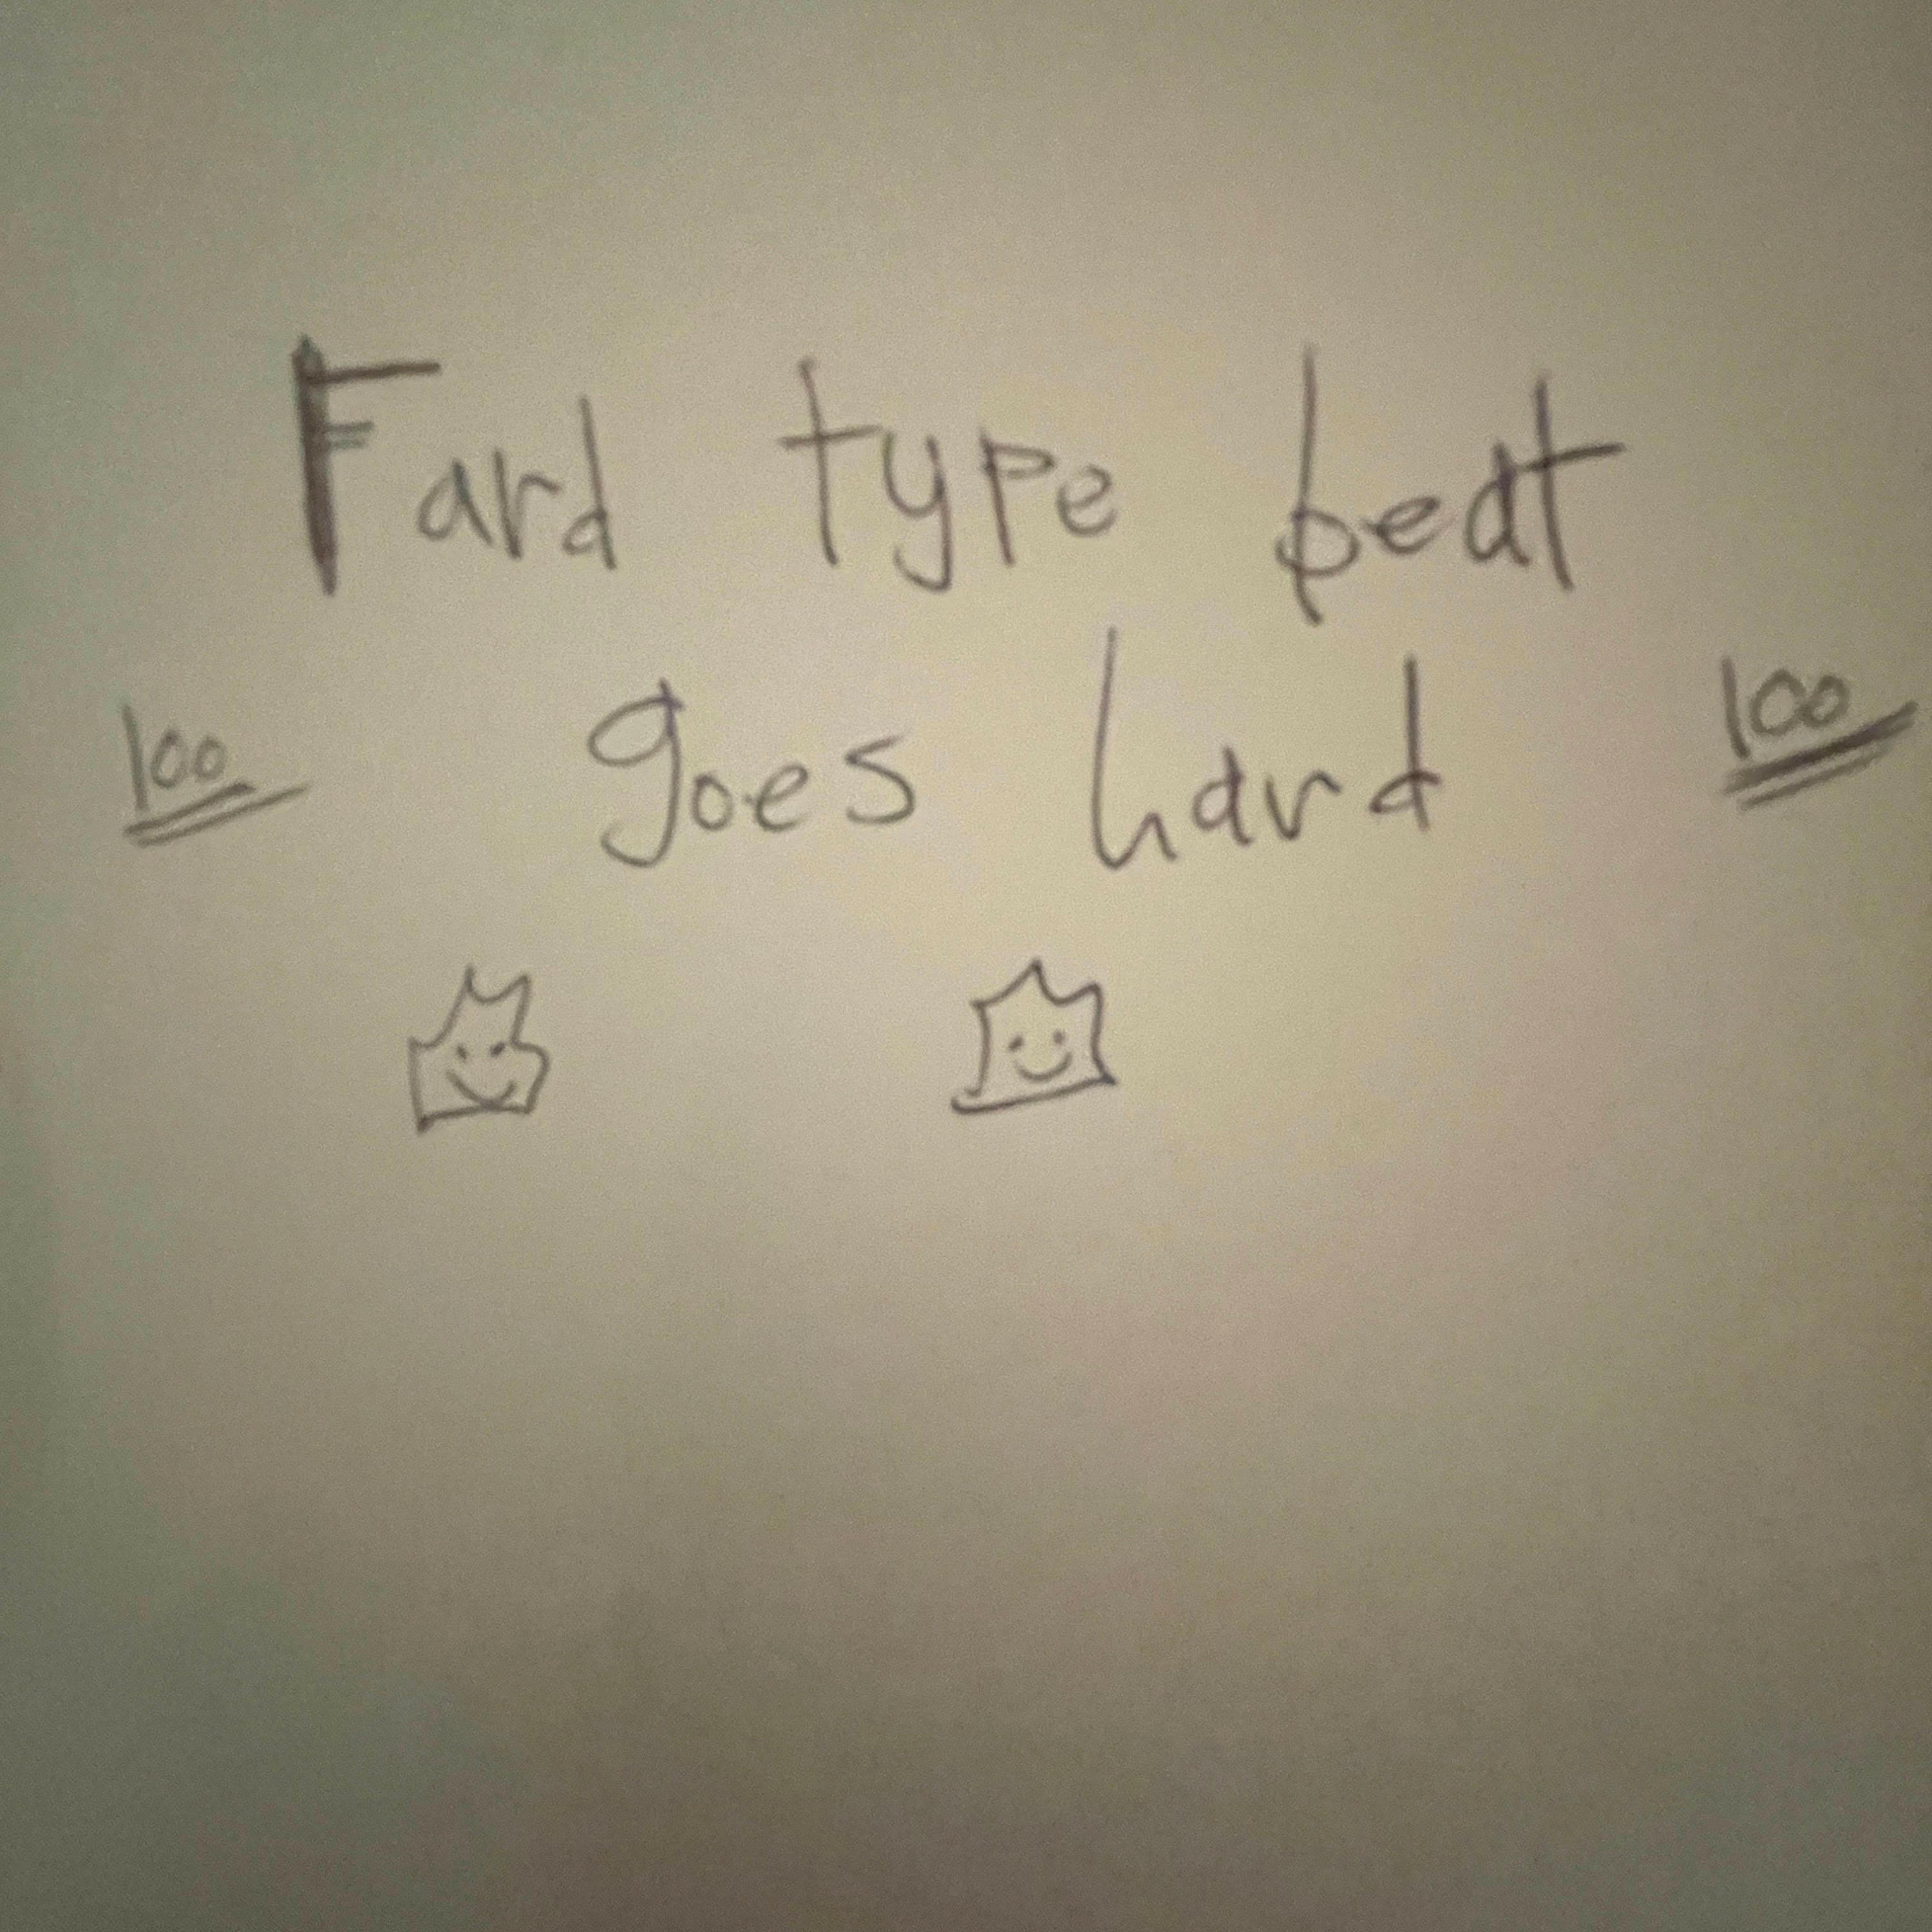 Fard type beat
100 goes hard 100